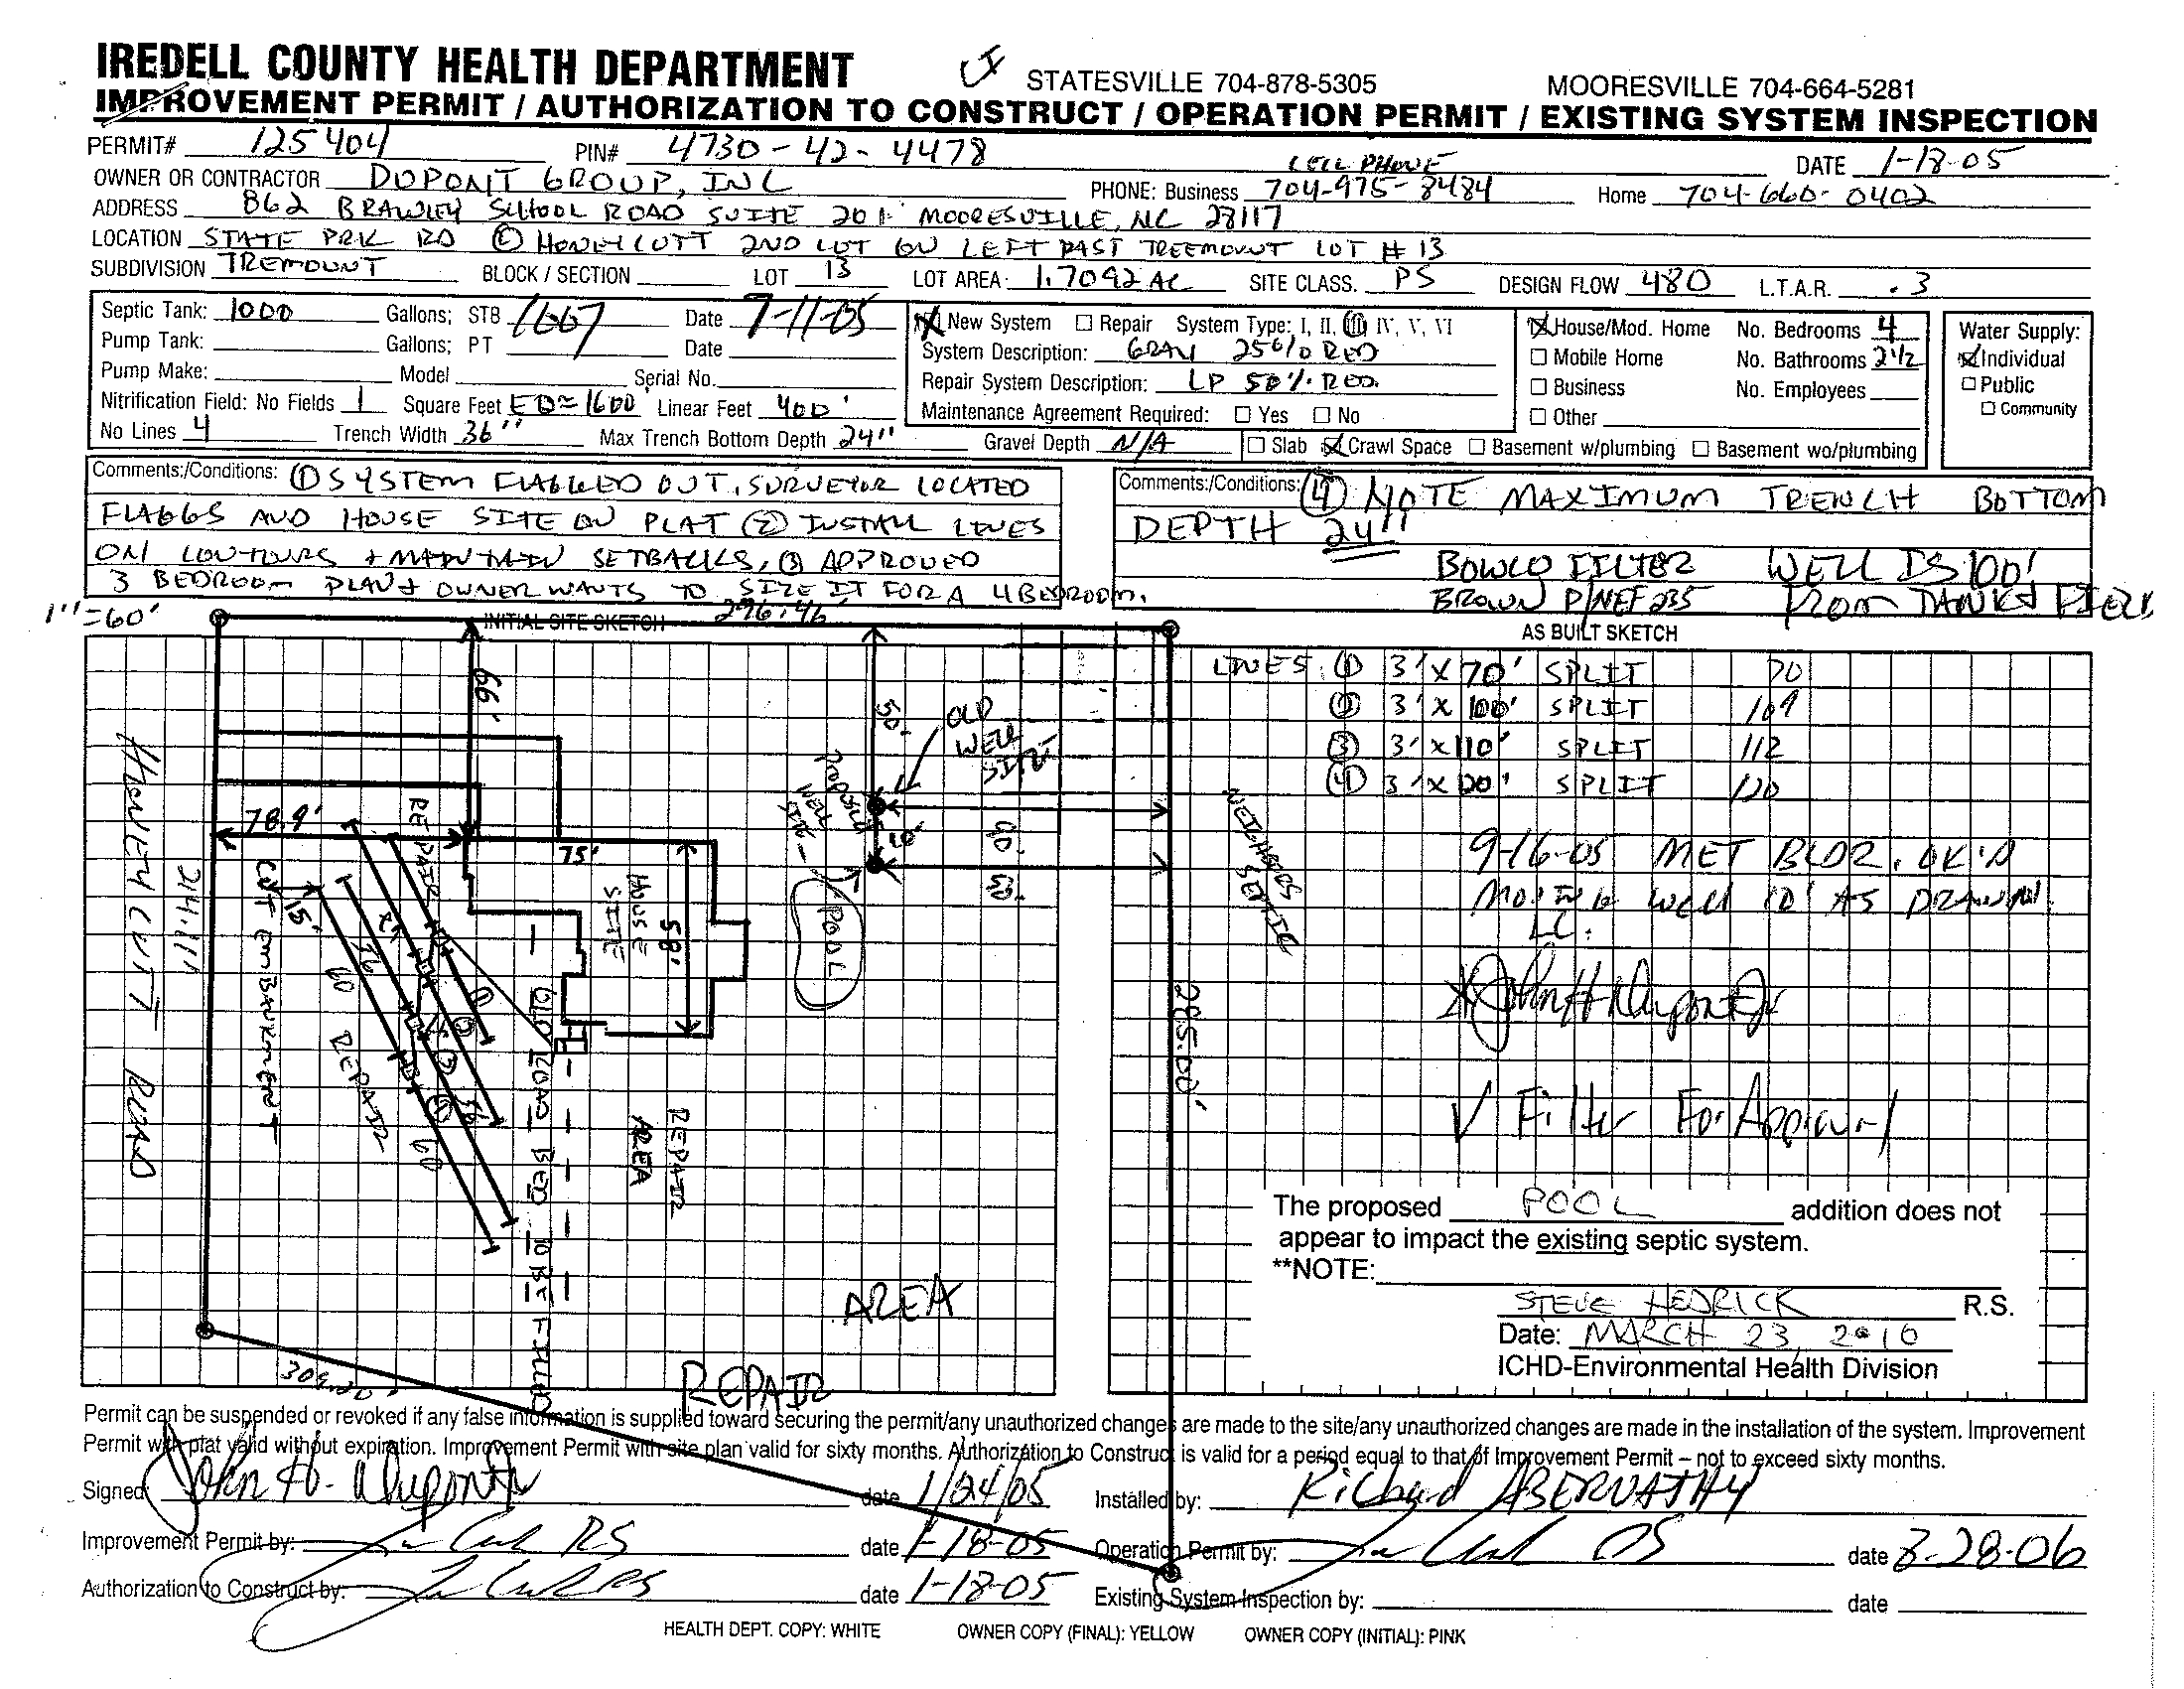 IREDELL COUNTY HEALTH DEPARTMENT
STATESVILLE 704-878-5305 MOORESVILLE 704-664-5281
IMPROVEMENT PERMIT / AUTHORIZATION TO CONSTRUCT / OPERATION PERMIT / EXISTING SYSTEM INSPECTION
PERMIT# 125404 PIN# 4730-42-4478 DATE 1-18-05
CELL PHONE
OWNER OR CONTRACTOR DUPONT GROUP, INC PHONE: Business 704-975-8484 Home 704-660-0402
ADDRESS 862 BRAWLEY SCHOOL ROAD SUITE 201 MOORESVILLE, NC 28117
LOCATION STATE PRK RD Ⓛ HONEYCUTT 2ND LOT ON LEFT PAST TREEMOUNT LOT # 13
SUBDIVISION TREMOUNT BLOCK / SECTION LOT 13 LOT AREA: 1.7092 AC SITE CLASS. PS DESIGN FLOW 480 L.T.A.R. .3
Septic Tank: 1000 Gallons; STB 1667 Date 7-11-05
Pump Tank: Gallons; PT Date
Pump Make: Model Serial No.
Nitrification Field: No Fields 1 Square Feet EQ=1600' Linear Feet 400'
No Lines 4 Trench Width 36" Max Trench Bottom Depth 24" Gravel Depth N/A
New System Repair System Type: I, II, III, IV, V, VI
System Description: GRAV 25% RED
Repair System Description: LP 50% RED.
Maintenance Agreement Required: Yes No
House/Mod. Home No. Bedrooms 4
Mobile Home No. Bathrooms 2 1/2
Business No. Employees
Other
Slab Crawl Space Basement w/plumbing Basement wo/plumbing
Water Supply:
Individual
Public
Community
Comments:/Conditions: ① SYSTEM FLAGGED OUT, SURVEYOR LOCATED
FLAGGS AND HOUSE SITE ON PLAT ② INSTALL LINES
ON CONTOURS + MAINTAIN SETBACKS, ③ APPROVED
3 BEDROOM PLAN & OWNER WANTS TO SIZE IT FOR A 4 BEDROOM.
Comments:/Conditions: ④ NOTE MAXIMUM TRENCH BOTTOM
DEPTH 24"
BOWCO FILTER WELL IS 100'
BROWN P/N EF 235 FROM TANK & FIELD
1"=60'
INITIAL SITE SKETCH 296.46'
AS BUILT SKETCH
66'
50'
OLD
WELL
SITE
PROPOSED
WELL
SITE
10'
90'
93'
78.9'
REPAIR
75'
58'
HOUSE
SITE
POOL
NEIGHBORS
SEPTIC
HONEYCUTT ROAD
214.11'
CUT EMBANKMENT
15'
27
56
60
REPAIR
①
②
③
④
56
60
OLD ROAD BED TO BE FILLED
REPAIR
AREA
285.00'
AREA
REPAIR
309.20'
LINES ① 3'X70' SPLIT 70
② 3'X100' SPLIT 109
③ 3'X110' SPLIT 112
④ 3'X120' SPLIT 120
9-16-05 MET BLDR, OK'D
MOVING WELL 10' AS DRAWN
LC.
X John H Dupont Jr
√ Filter For Approval
The proposed POOL addition does not
appear to impact the existing septic system.
**NOTE:
STEVE HEDRICK R.S.
Date: MARCH 23, 2010
ICHD-Environmental Health Division
Permit can be suspended or revoked if any false information is supplied toward securing the permit/any unauthorized changes are made to the site/any unauthorized changes are made in the installation of the system. Improvement
Permit with plat valid without expiration. Improvement Permit with site plan valid for sixty months. Authorization to Construct is valid for a period equal to that of Improvement Permit – not to exceed sixty months.
Signed: John H. Dupont Jr date 1/24/05 Installed by: Richard ABERNATHY
Improvement Permit by: RS date 1-18-05 Operation Permit by: RS date 3-28-06
Authorization to Construct by: RS date 1-18-05 Existing System Inspection by: date
HEALTH DEPT. COPY: WHITE OWNER COPY (FINAL): YELLOW OWNER COPY (INITIAL): PINK